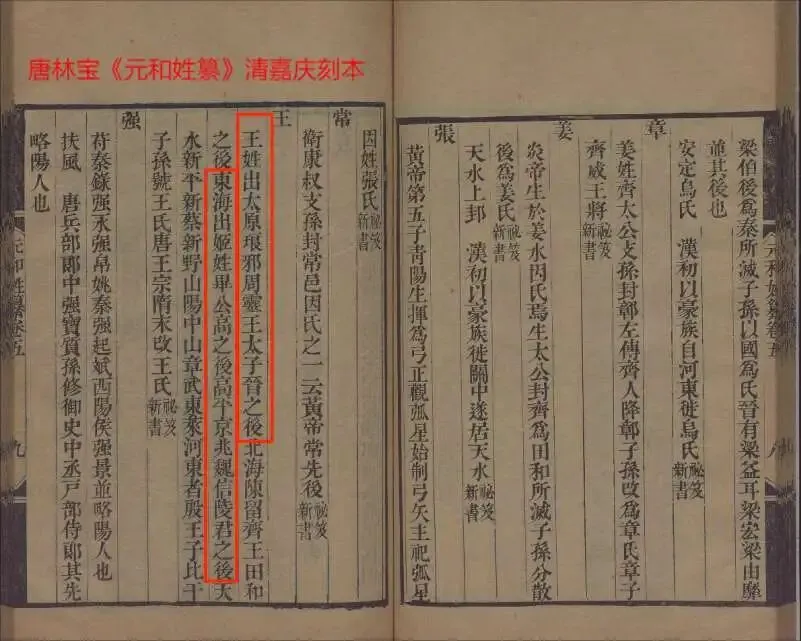 唐林宝《元和姓纂》清嘉庆刻本
梁伯後爲秦所滅子孫以國爲氏晉有梁益耳梁宏梁由靡
並其後也
章
安定烏氏 漢初以豪族自河東徙烏氏秘笈新書
姜姓齊太公支孫封鄣左傳齊人降鄣子孫改爲章氏章子
齊威王將秘笈新書
姜
炎帝生於姜水因氏焉生太公封齊爲田和所滅子孫分散
後爲姜氏秘笈新書
天水上邽 漢初以豪族徙關中遂居天水秘笈新書
張
黃帝第五子青陽生揮爲弓正觀弧星始制弓矢主祀弧星
元和姓纂卷五
八
因姓張氏秘笈新書
常
衛康叔支孫封常邑因氏之一云黃帝常先後秘笈新書
王
王姓出太原琅邪周靈王太子晉之後北海陳留齊王田和
之後東海出姬姓畢公高之後高平京兆魏信陵君之後天
水新平新蔡新野山陽中山章武東萊河東者殷王子比干
子孫號王氏唐王宗隋末改王氏秘笈新書
强
苻秦錄强永强帛姚秦强起斌西陽侯强景並略陽人也
扶風 唐兵部郎中强寶質孫修御史中丞戸部侍郎其先
略陽人也
元和姓纂卷五
九